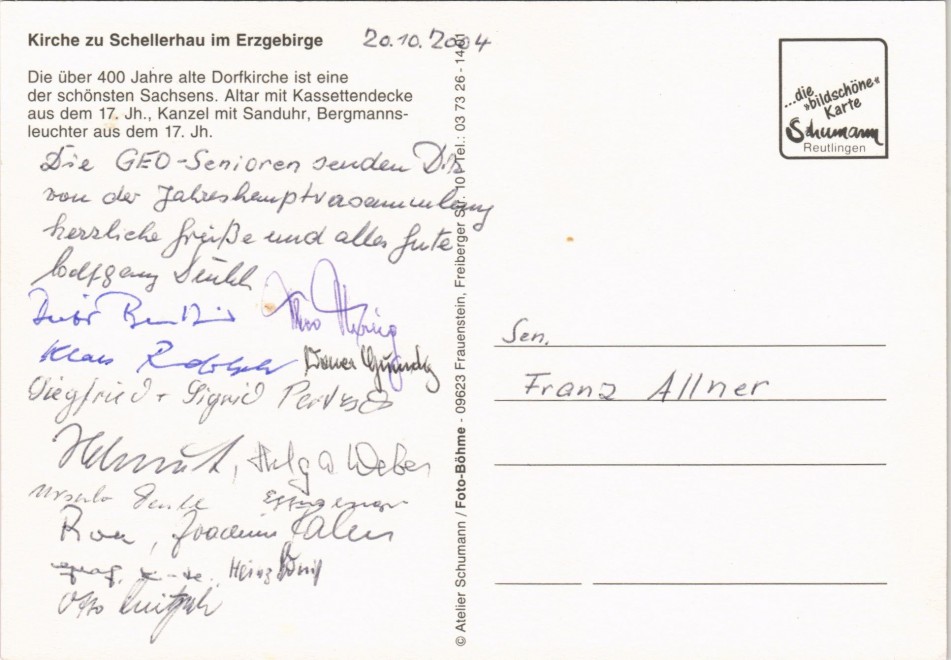 Kirche zu Schellerhau im Erzgebirge
20.10.2004
Die über 400 Jahre alte Dorfkirche ist eine
der schönsten Sachsens. Altar mit Kassettendecke
aus dem 17. Jh., Kanzel mit Sanduhr, Bergmanns-
leuchter aus dem 17. Jh.
Die GEO-Senioren senden Dir
von der Jahreshauptversammlung
herzliche Grüße und alles Gute
Wolfgang
Klaus Rudolph
Siegfried + Sigrid
Helmut, Helga Weber
Ursula
Joachim
Heinz
Otto
© Atelier Schumann / Foto-Böhme - 09623 Frauenstein, Freiberger Str. 10 Tel.: 03 73 26 - 14
...die
»bildschöne«
Karte
Schumann
Reutlingen
Sen.
Franz Allner